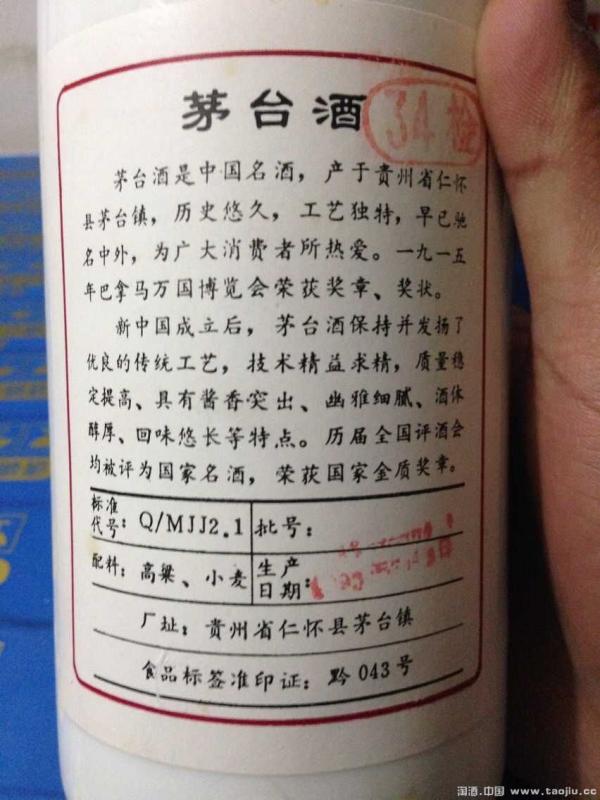 茅台酒
34检
茅台酒是中国名酒，产于贵州省仁怀
县茅台镇，历史悠久，工艺独特，早已驰
名中外，为广大消费者所热爱。一九一五
年巴拿马万国博览会荣获奖章、奖状。
新中国成立后，茅台酒保持并发扬了
优良的传统工艺，技术精益求精，质量稳
定提高、具有酱香突出、幽雅细腻、酒体
醇厚、回味悠长等特点。历届全国评酒会
均被评为国家名酒，荣获国家金质奖章。
标准代号：Q/MJJ2.1 批号：
配料：高粱、小麦 生产日期：
厂址：贵州省仁怀县茅台镇
食品标签准印证：黔043号
淘酒.中国 www.taojiu.cc